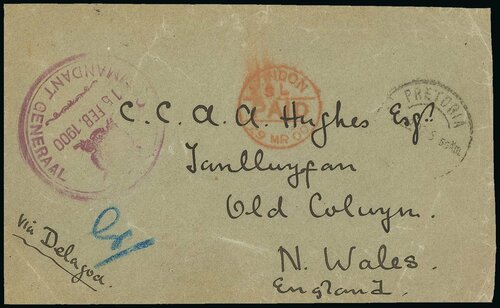 COMMANDANT GENERAAL
15 FEB. 1900
LONDON
PAID
MR 00
PRETORIA
C. C. A. A. Hughes Esqr.
Tanllwyfan
Old Colwyn.
N. Wales.
England.
via Delagoa.